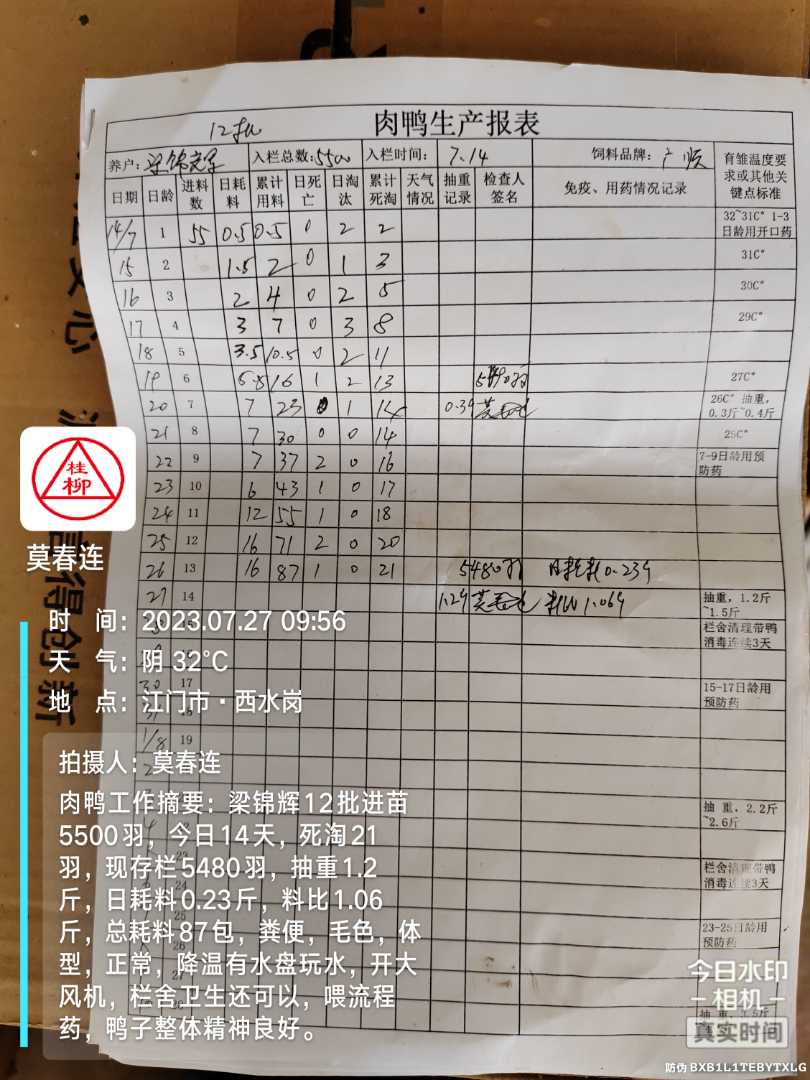 12批
肉鸭生产报表
养户: 入栏总数:5500 入栏时间: 7.14 饲料品牌: 广顺 育雏温度要求或其他关键点标准
日期 日龄 进料数 日耗料 累计用料 日死亡 日淘汰 累计死淘 天气情况 抽重记录 检查人签名 免疫、用药情况记录
14/7 1 55 0.5 0.5 0 2 2 32~31C° 1-3日龄用开口药
15 2 1.5 2 0 1 3 31C°
16 3 2 4 0 2 5 30C°
17 4 3 7 0 3 8 29C°
18 5 3.5 10.5 0 2 11
19 6 5.5 16 1 2 13 27C°
20 7 7 23 0 1 14 0.39 莫春连 26C° 抽重，0.3斤~0.4斤
21 8 7 30 0 0 14 25C°
22 9 7 37 2 0 16 7-9日龄用预防药
23 10 6 43 1 0 17
24 11 12 55 1 0 18
25 12 16 71 2 0 20
26 13 16 87 1 0 21 5480羽 日耗料0.23斤
27 14 1.2斤 莫春连 料比1.06斤 抽重，1.2斤~1.5斤
栏舍清理带鸭消毒连续3天
17 15-17日龄用预防药
1/8 19
抽重，2.2斤~2.6斤
栏舍清理带鸭消毒连续3天
23-25日龄用预防药
桂柳
莫春连
时 间: 2023.07.27 09:56
天 气: 阴 32℃
地 点: 江门市·西水岗
拍摄人: 莫春连
肉鸭工作摘要: 梁锦辉12批进苗
5500羽，今日14天，死淘21
羽，现存栏5480羽，抽重1.2
斤，日耗料0.23斤，料比1.06
斤，总耗料87包，粪便，毛色，体
型，正常，降温有水盘玩水，开大
风机，栏舍卫生还可以，喂流程
药，鸭子整体精神良好。
今日水印
相机
真实时间
防伪 BXB1L1TEBYTXLG